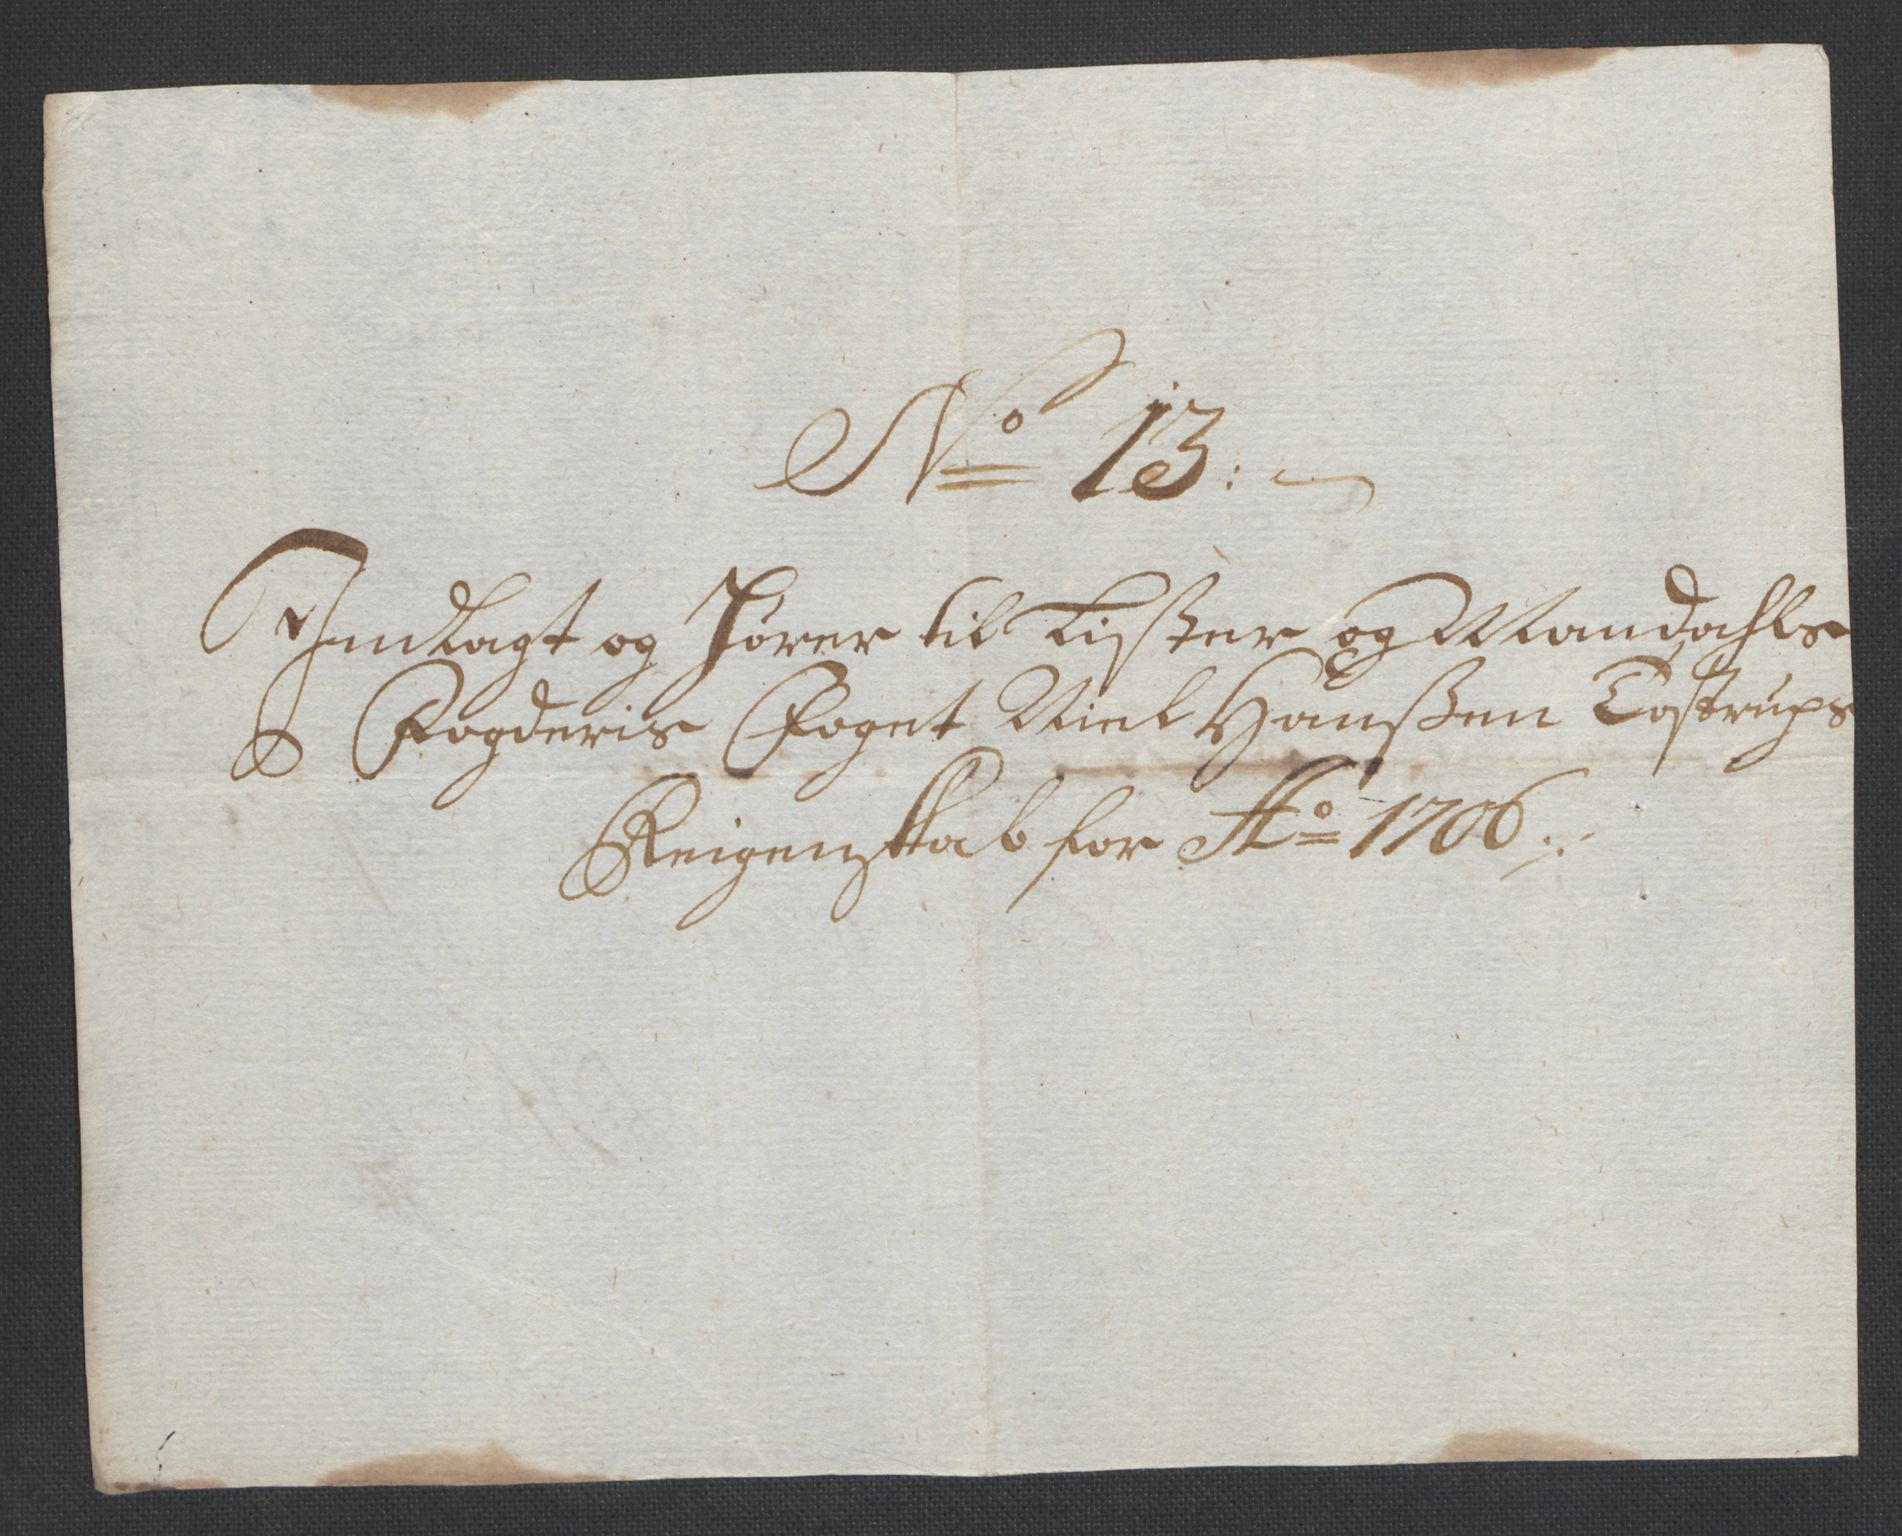 No 13:
Indlagt og Hører til Lister og Mandahls
Fogderis Foget Niel Hanßen Tostrups
Reigenskab for Ao 1706.